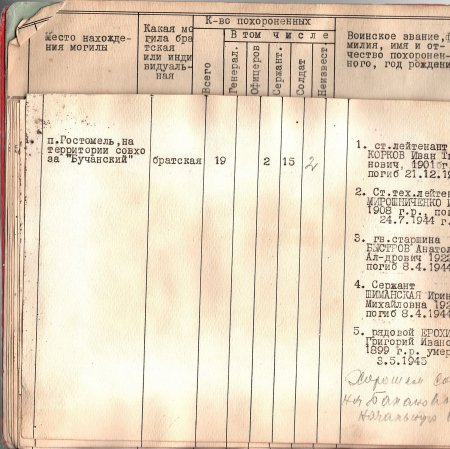 Место нахожде-
ния могилы
Какая мо
гила бра
тская
или инди
видуаль-
ная
К-во похороненных
В том числе
Всего
Генерал.
Офицеров
Сержант.
Солдат
Неизвест.
Воинское звание, ф
милия, имя и от-
чество похоронен-
ного, год рождени
п.Гостомель, на
территории совхо
за "Бучанский"
братская
19
2
15
2
1. ст.лейтенант
КОРКОВ Иван Ти
нович, 1901г
погиб 21.12.19
2. Ст.тех.лейтен
МИРОШНИЧЕНКО И
1908 г.р., пов
24.7.1944 г.
3. гв.старшина
БЫСТРОВ Анатол
Ал-дрович 1922
погиб 8.4.1944
4. Сержант
ШИМАНСКАЯ Ирин
Михайловна 192
погиб 8.4.1944
5. рядовой ЕРОХИ
Григорий Ивано
1899 г.р. умер
3.5.1945